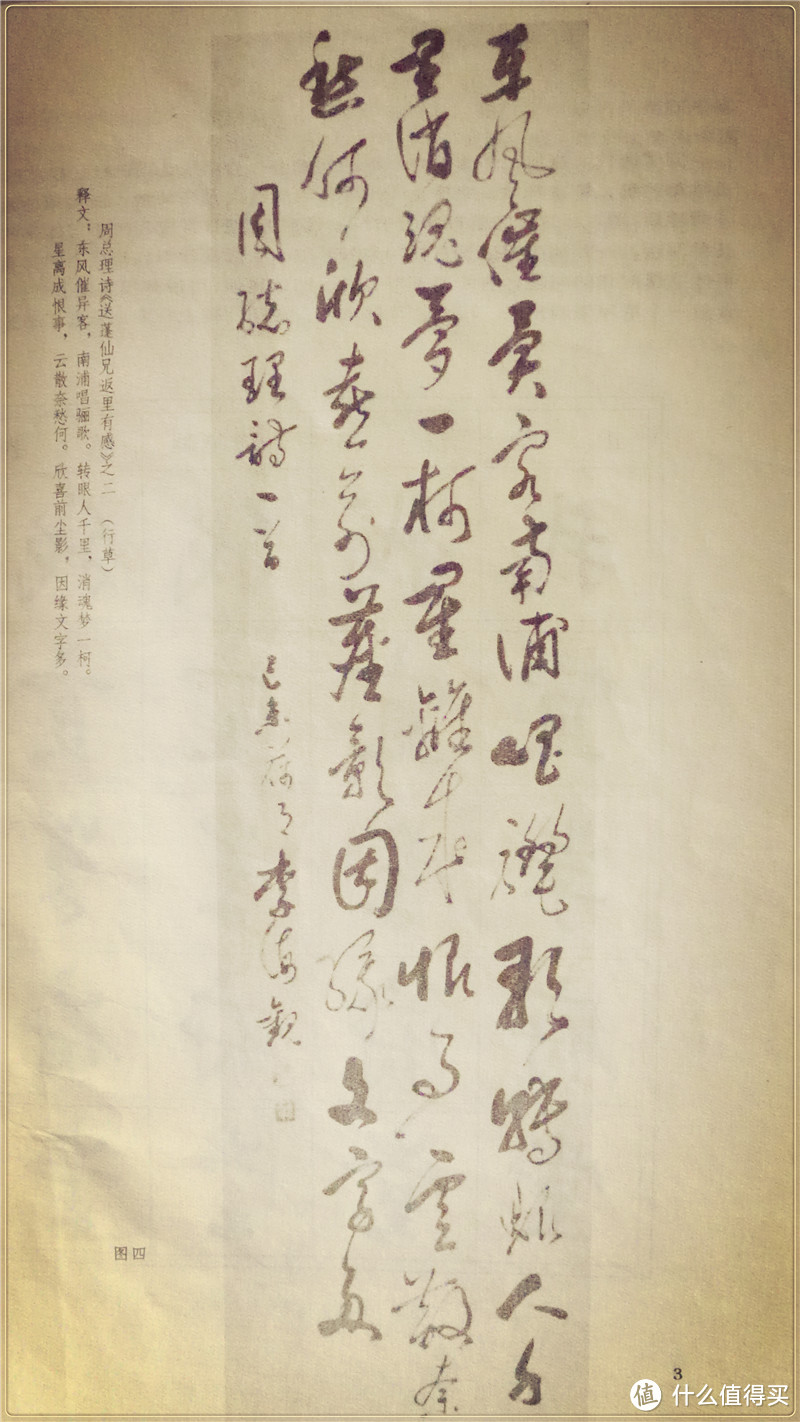 东风催異客南浦唱骊歌转眼人千
里消魂梦一柯星離成恨事云散奈
愁何欣喜前塵影因缘文字多
周總理詩一首 己未荷月李海觀
周总理诗《送蓬仙兄返里有感》之二 （行草）
释文：东风催异客，南浦唱骊歌。转眼人千里，消魂梦一柯。
星离成恨事，云散奈愁何。欣喜前尘影，因缘文字多。
图四
3
值 什么值得买